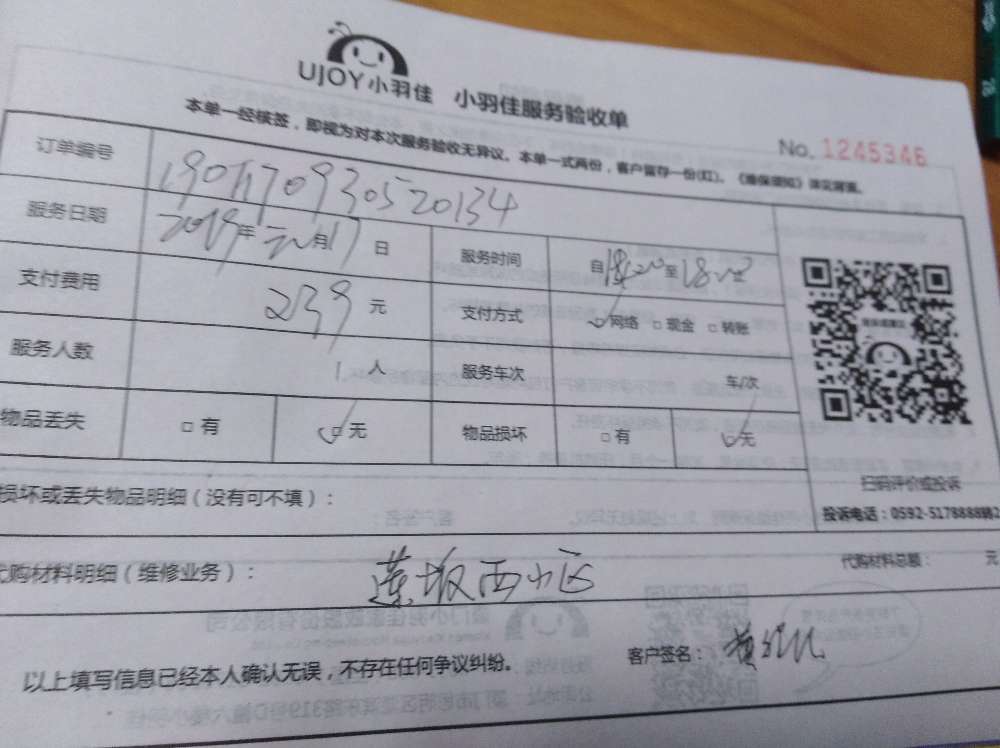 UJOY小羽佳 小羽佳服务验收单
本单一经核签，即视为对本次服务验收无异议。本单一式两份，客户留存一份(红)。《维保须知》详见背面。
No. 1245346
订单编号
服务日期 2019年 月17日 服务时间 自 至
支付费用 239元 支付方式 网络 □现金 □转账
服务人数 1人 服务车次 车/次
物品丢失 □有 □无 物品损坏 □有 无
损坏或丢失物品明细（没有可不填）：
扫码评价或投诉
代购材料明细（维修业务）： 莲坂西小区 代购材料总额： 元
以上填写信息已经本人确认无误，不存在任何争议纠纷。 客户签名：